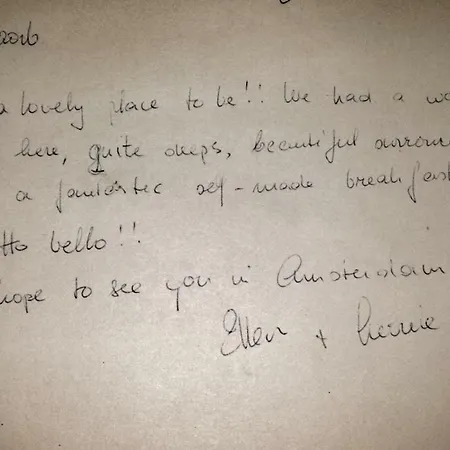 2016
a lovely place to be!! We had a wo
here, quite deeps, beautiful surroun
a fantastic self-made breakfast
tto bello!!
hope to see you in Amsterdam
Ellen +